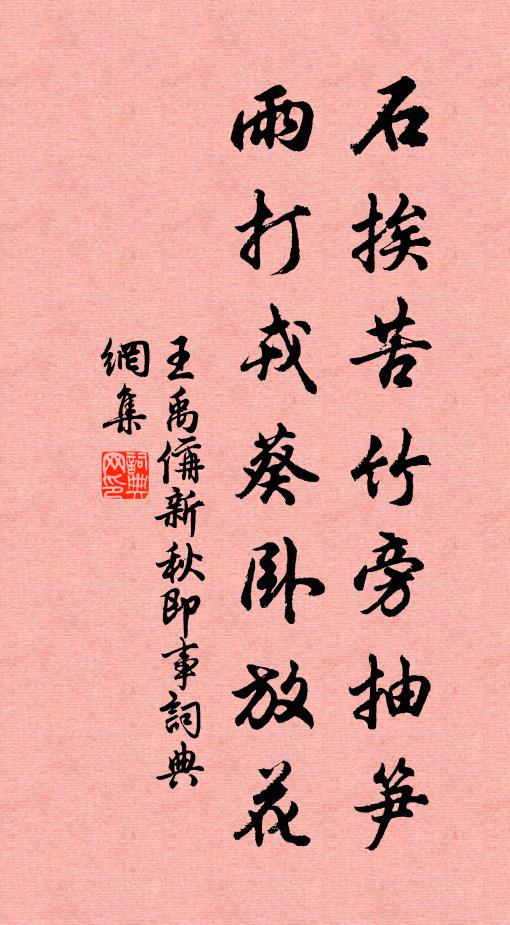 石挨苦竹旁抽笋
雨打戎葵卧放花
王禹偁新秋即事詞典
網集
詞典网印